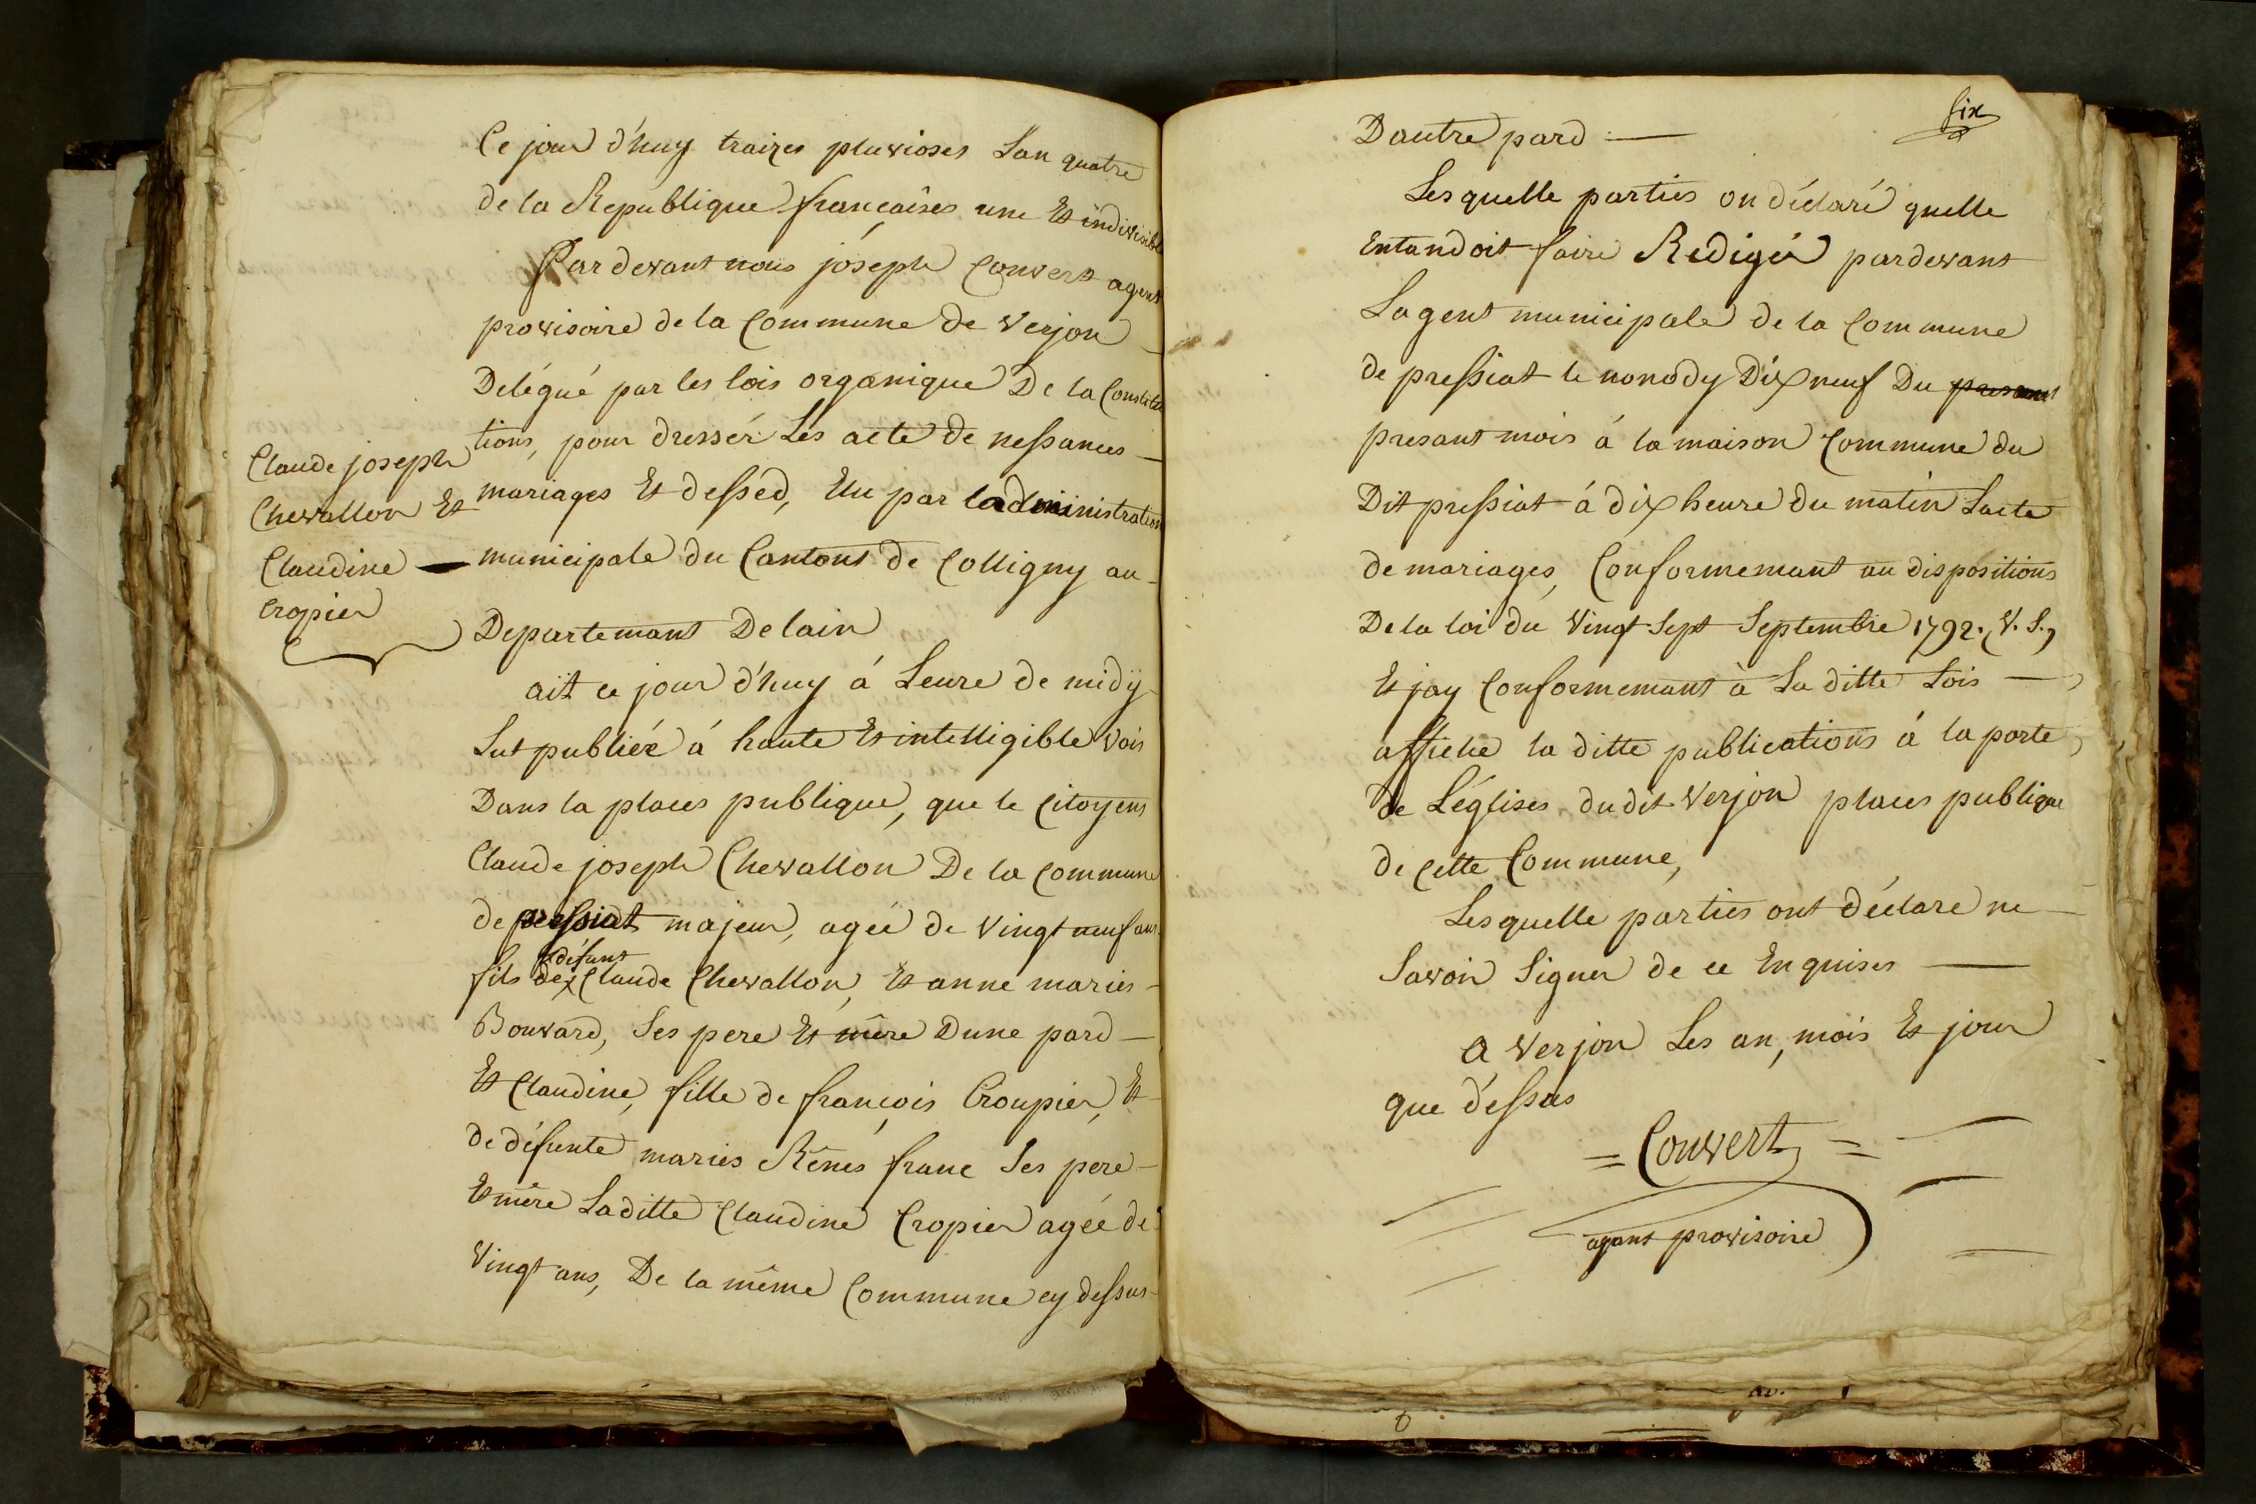 Ce jour d'huy traizes pluvioses Lan quatre
de la Republique françaises une Et indivisible
Par devant nous joseph Convert agent
provisoire de la Commune de Verjon
Delégué par les lois organique De la Constitu
tions, pour dressér Les acte de nessances
mariages Et dessed, Elu par ladministration
municipale du Cantons de Colligny au
Departemant Delain
Claude joseph
Chevallon Et
Claudine
Cropier
ait ce jour d'huy á Leure de midy
Lut publiée á haute Et intelligible Vois
Dans la places publique, que le Citoyens
Claude joseph Chevallon De la Commune
de pressiat majeur, agée de Vingt neuf ans
défunt
fils de Claude Chevallon, Et anne maries
Bouvard, Ses pere Et mère Dune pard
Et Claudine, fille de françois Croupier, Et
de défunte maries Rénés franc Ses pere
Et mêre Laditte Claudine Cropier agée de
Vingt ans, De la même Commune cy dessus
six
Dautre pard
Les quelle parties on déclaré quelle
Entandoit faire Redigér pardevant
Lagent municipale de la Commune
de pressiat le nonody Dix neuf Du presant
presant mois á la maison Commune du
Dit pressiat á dix heure du matin Lacte
de mariages, Conformemant au dispositions
De la loi du Vingt Sept Septembre 1792. V. S.,
Et jay Conformemant à La ditte Lois
affiche la ditte publications á la porte
de Léglises dudit Verjon places publique
de Cette Commune,
Les quelle parties ont déclare ne
Savoir Signer de ce Enquises
a Verjon Les an, mois Et jour
que déssus
= Convert =
agant provisoire